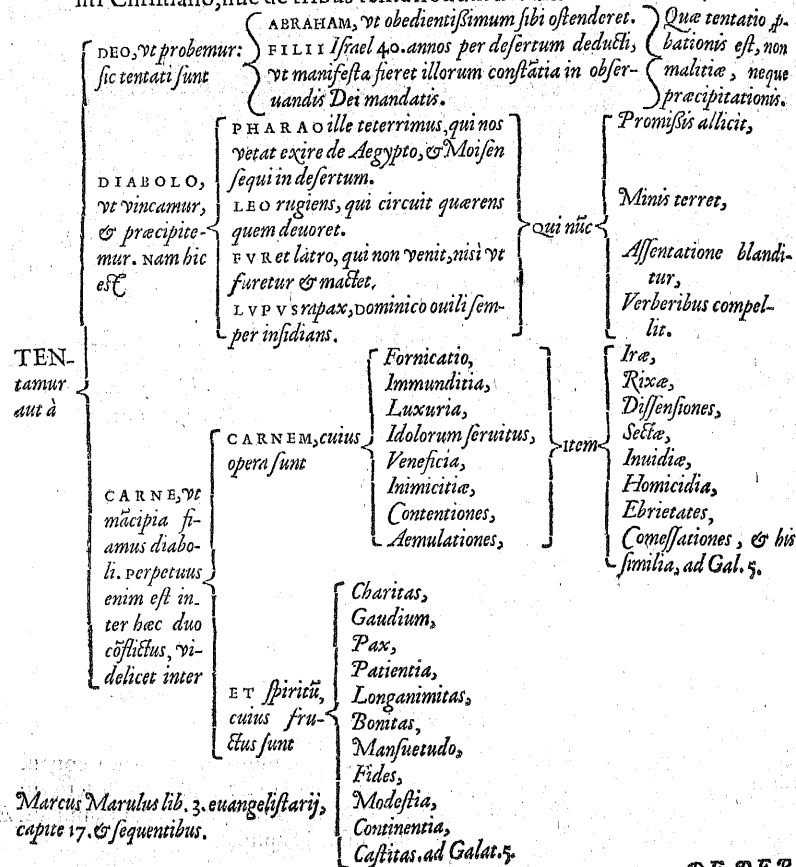 DEO, vt probemur:
sic tentati sunt
ABRAHAM, vt obedientißimum sibi ostenderet.
FILII Israel 40. annos per desertum deducti,
vt manifesta fieret illorum constãtia in obser-
uandis Dei mandatis.
Quæ tentatio p-
bationis est, non
malitiæ, neque
præcipitationis.
DIABOLO,
vt vincamur,
& præcipite-
mur. Nam hic
est
PHARAO ille teterrimus, qui nos
vetat exire de Aegypto, & Moisen
sequi in desertum.
LEO rugiens, qui circuit quærens
quem deuoret.
FVR et latro, qui non venit, nisi vt
furetur & mactet,
LVPVS rapax, Dominico ouili sem-
per insidians.
Qui nũc
Promißis allicit,
Minis terret,
Assentatione blandi-
tur,
Verberibus compel-
lit.
TEN-
tamur
aut à
CARNE, vt
mãcipia fi-
amus diabo-
li. Perpetuus
enim est in-
ter hæc duo
cõflictus, vi-
delicet inter
CARNEM, cuius
opera sunt
Fornicatio,
Immunditia,
Luxuria,
Idolorum seruitus,
Veneficia,
Inimicitiæ,
Contentiones,
Aemulationes,
Item
Iræ,
Rixæ,
Dissensiones,
Sectæ,
Inuidiæ,
Homicidia,
Ebrietates,
Comessationes, & his
similia, ad Gal. 5.
ET spiritũ,
cuius fru-
ctus sunt
Charitas,
Gaudium,
Pax,
Patientia,
Longanimitas,
Bonitas,
Mansuetudo,
Fides,
Modestia,
Continentia,
Castitas. ad Galat. 5.
Marcus Marulus lib. 3. euangelistarij,
capite 17. & sequentibus.